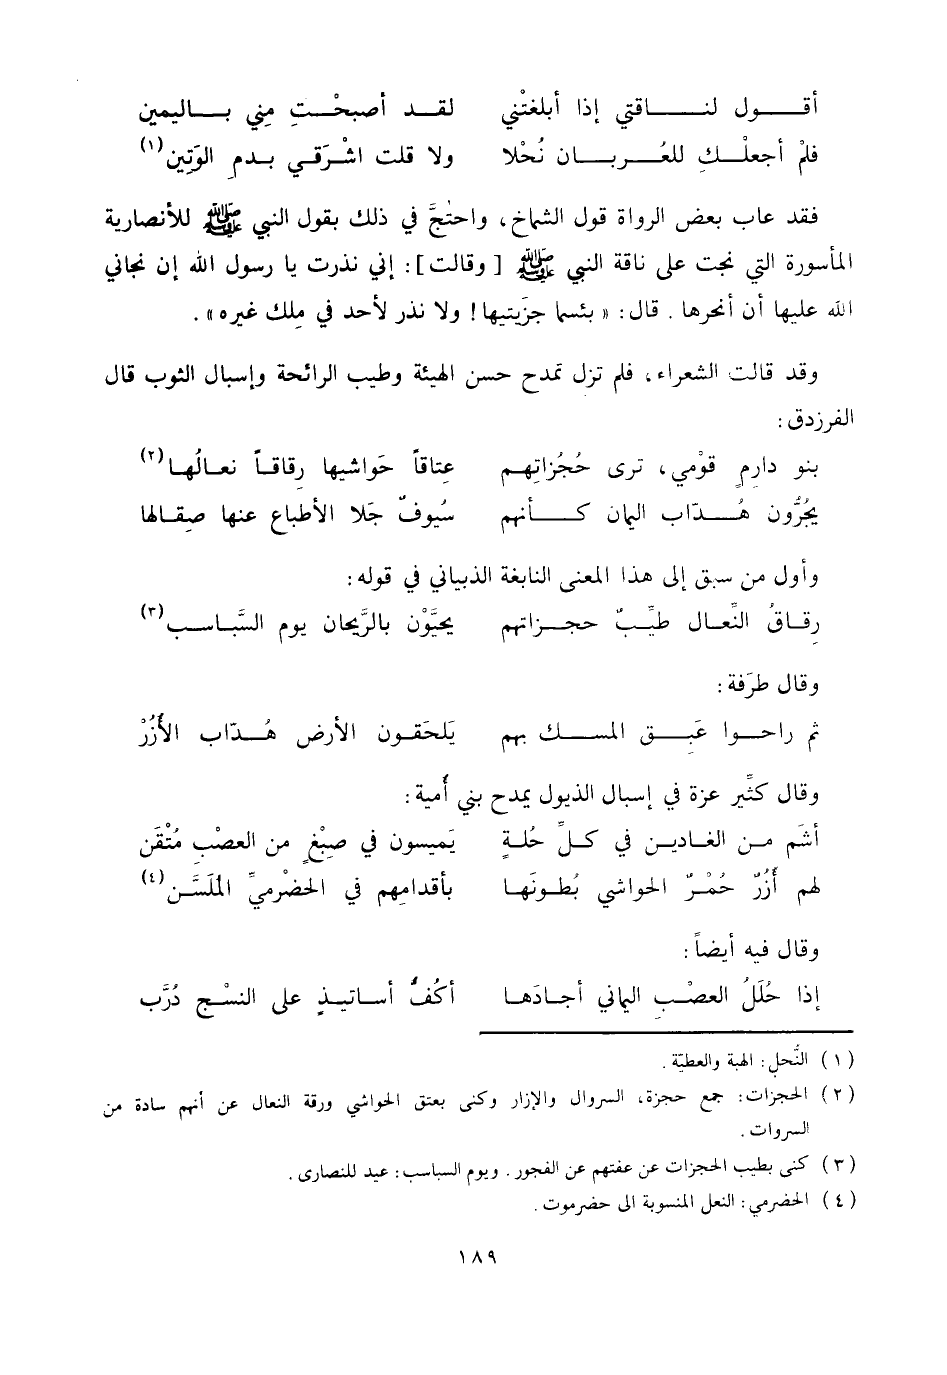 أقول لناقتي إذا أبلغتْني لقد أصبحْتِ مِني باليمين
فلمْ أجعلْكِ للغربان نُحْلا ولا قلت اشْرَقي بدم الوَتِين(١)
فقد عاب بعض الرواة قول الشماخ، واحتجَّ في ذلك بقول النبي ﷺ للأنصارية
المأسورة التي نجت على ناقة النبي ﷺ [ وقالت ]: إني نذرت يا رسول الله إن نجاني
الله عليها أن أنحرها . قال: « بئسما جزَيتِيها ! ولا نذر لأحد في مِلك غيره » .
وقد قالت الشعراء، فلم تزل تمدح حسن الهيئة وطيب الرائحة وإسبال الثوب قال
الفرزدق :
بنو دارِمٍ قوْمي، ترى حُجُزاتِهم عِتاقاً حَواشيها رِقاقاً نعالُها(٢)
يجُرُّون هُدّاب اليمان كأنهم سُيوفٌ جَلا الأطباع عنها صِقالها
وأول من سبق إلى هذا المعنى النابغة الذبياني في قوله:
رِقاقُ النِّعال طيِّبٌ حجزاتهم يحيَّوْن بالرَّيحان يوم السَّباسب(٣)
وقال طرَفة :
ثم راحوا عَبِق المسك بهم يَلحَقون الأرض هُدّاب الأُزُرْ
وقال كثِّير عزة في إسبال الذيول يمدح بني أُمية :
أشَم من الغادين في كلِّ حُلةٍ يَميسون في صِبْغٍ من العصْبِ مُتْقَن
لهم أُزُرٌ حُمْرٌ الحواشي بُطونَها بأقدامِهم في الحضْرميِّ المُلَسَّن(٤)
وقال فيه أيضاً :
إذا حُلَلُ العصْبِ اليماني أجادَها أكُفُّ أساتيذٍ على النسْج دُرَّب
(١) النُّحل: الهبة والعطيّة .
(٢) الحجزات: جمع حجزة، السروال والإزار وكنى بعتق الحواشي ورقة النعال عن أنهم سادة من
السروات .
(٣) كنى بطيب الحجزات عن عفتهم عن الفجور . ويوم السباسب: عيد للنصارى .
(٤) الحضرمي: النعل المنسوبة الى حضرموت .
١٨٩